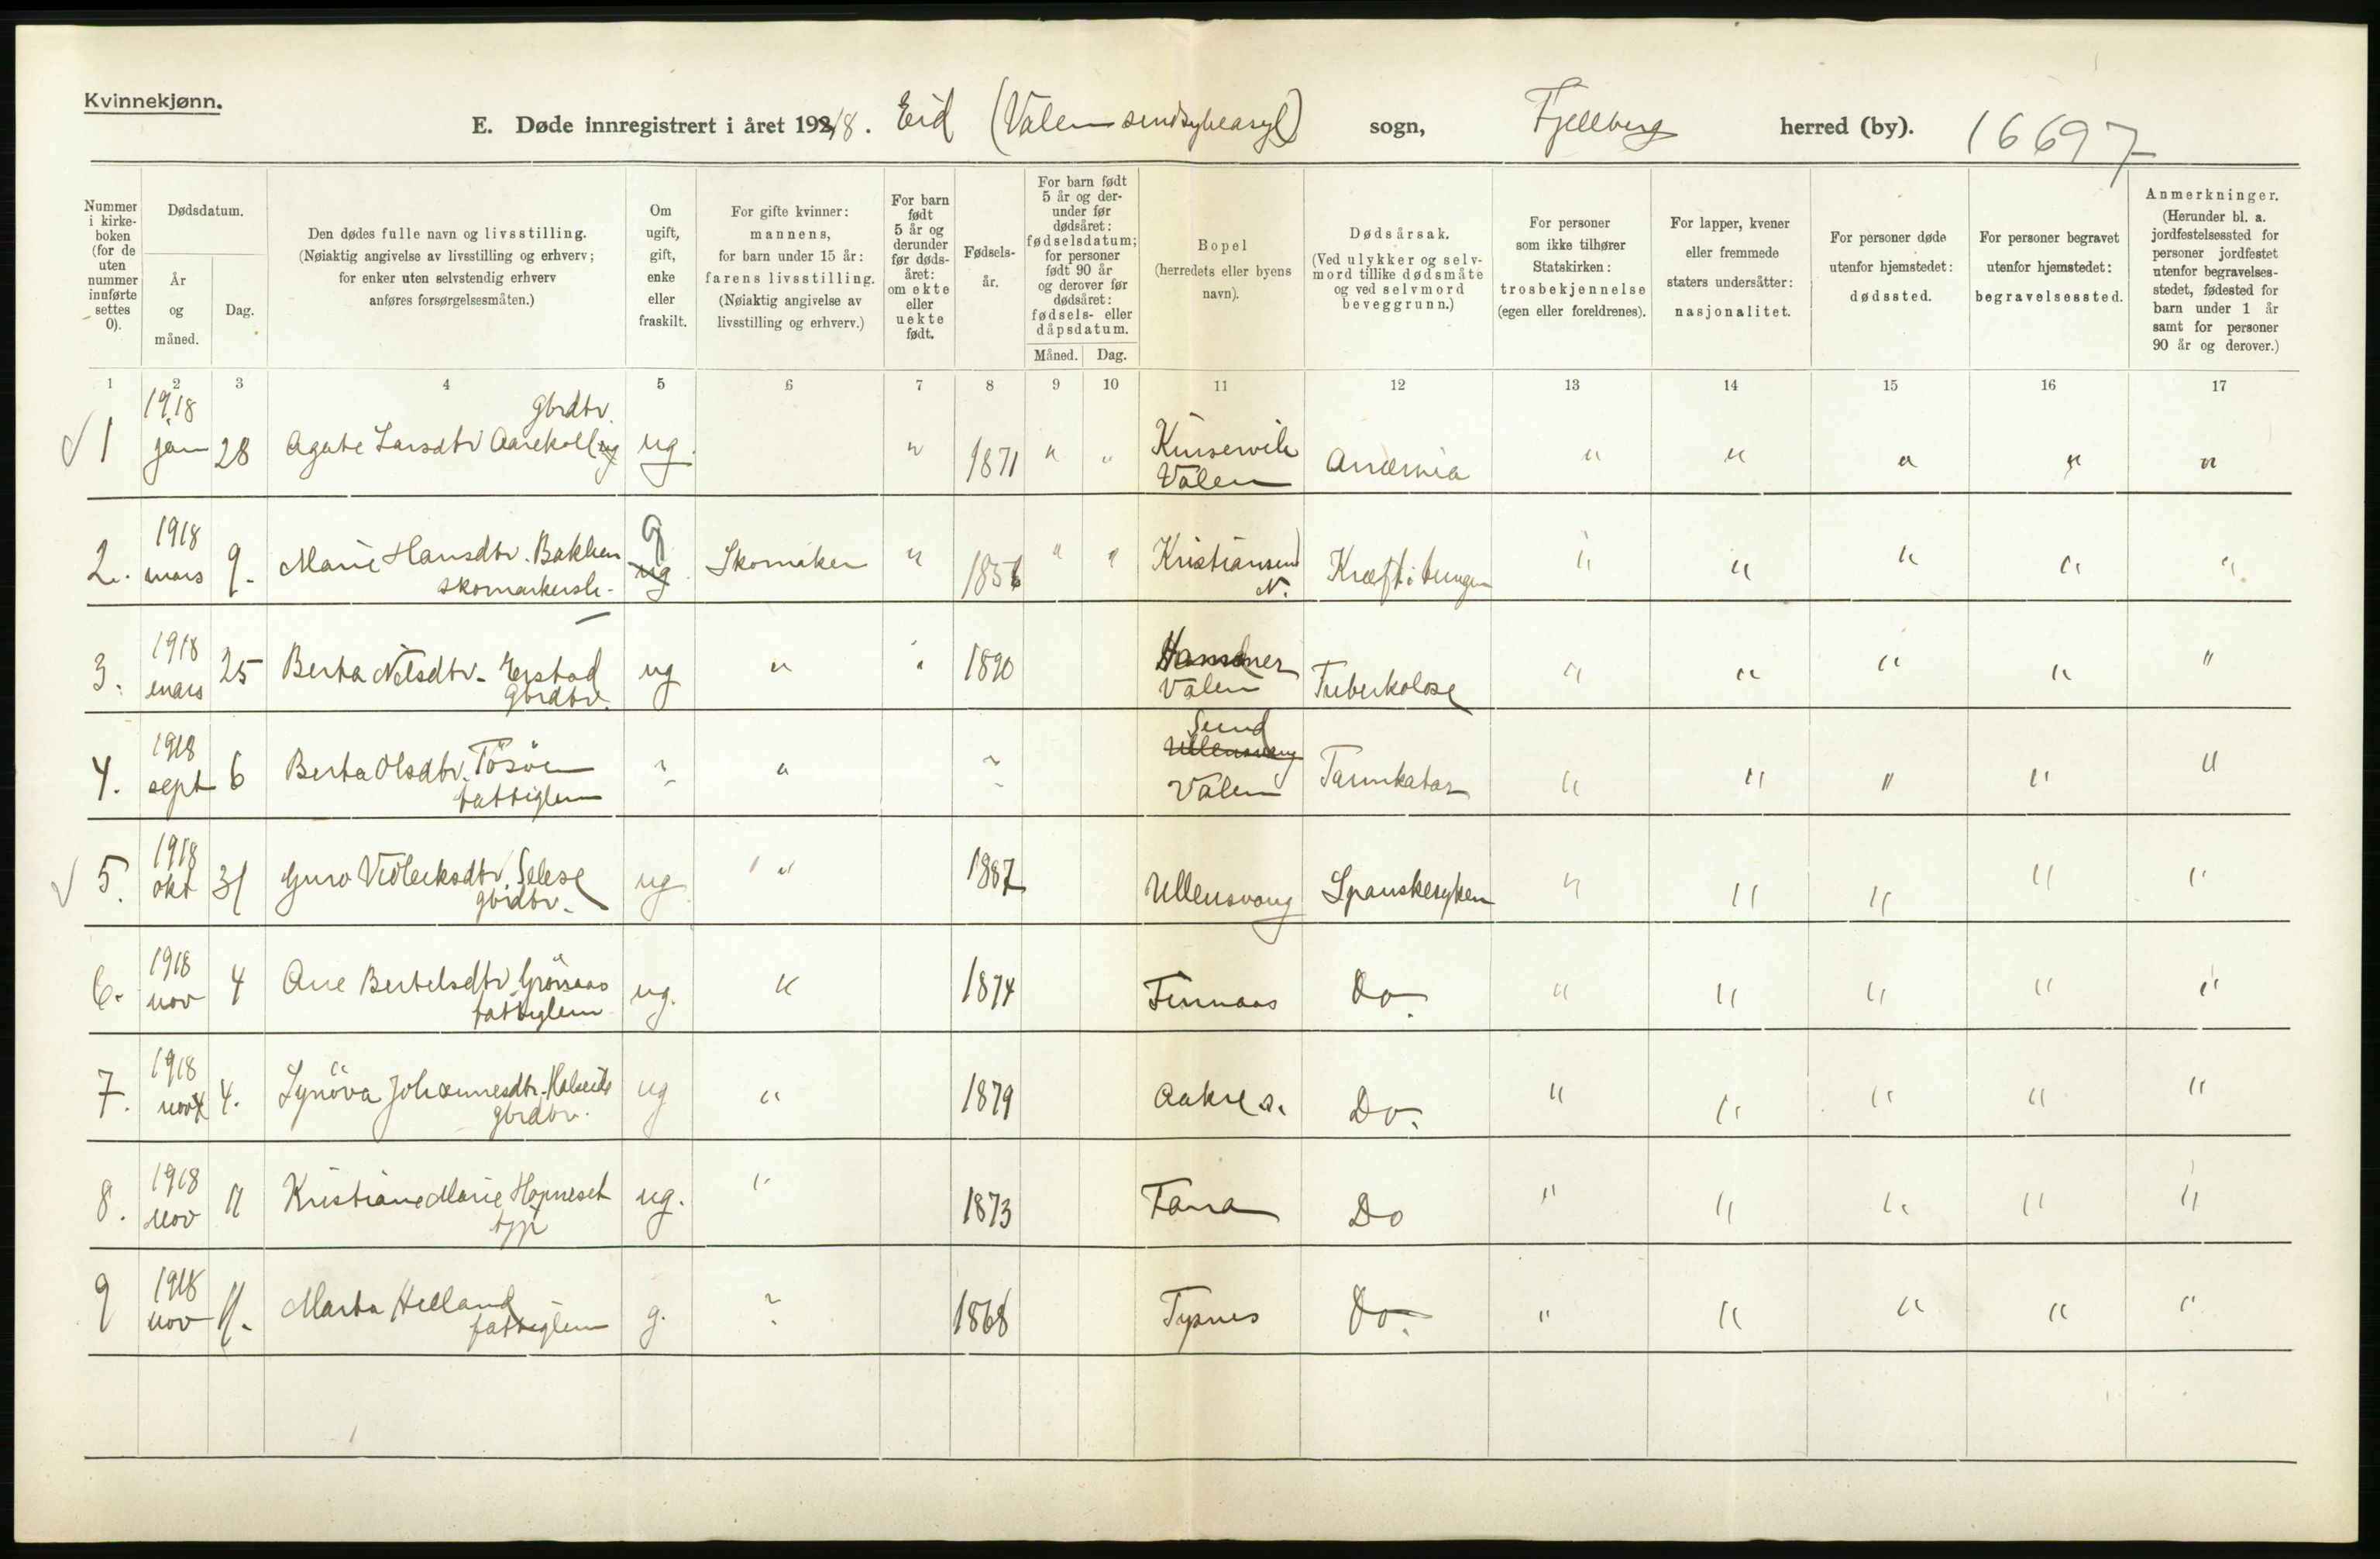 Kvinnekjønn.
E. Døde innregistrert i året 1918. Eid (Valen sindsykeasyl) sogn, Fjellberg herred (by). 16697
Nummer i kirke-boken (for de uten nummer innførte settes 0).
Dødsdatum.
År og måned.
Dag.
Den dødes fulle navn og livsstilling.
(Nøiaktig angivelse av livsstilling og erhverv;
for enker uten selvstendig erhverv
anføres forsørgelsesmåten.)
Om ugift, gift, enke eller fraskilt.
For gifte kvinner:
mannens,
for barn under 15 år:
farens livsstilling.
(Nøiaktig angivelse av
livsstilling og erhverv.)
For barn født 5 år og derunder før døds-året: om ekte eller uekte født.
Fødsels-år.
For barn født 5 år og der-under før dødsåret: fødselsdatum; for personer født 90 år og derover før dødsåret: fødsels- eller dåpsdatum.
Måned. Dag.
Bopel
(herredets eller byens
navn).
Dødsårsak.
(Ved ulykker og selv-
mord tillike dødsmåte
og ved selvmord
beveggrunn.)
For personer
som ikke tilhører
Statskirken:
trosbekjennelse
(egen eller foreldrenes).
For lapper, kvener
eller fremmede
staters undersåtter:
nasjonalitet.
For personer døde
utenfor hjemstedet:
dødssted.
For personer begravet
utenfor hjemstedet:
begravelsessted.
Anmerkninger.
(Herunder bl. a.
jordfestelsessted for
personer jordfestet
utenfor begravelses-
stedet, fødested for
barn under 1 år
samt for personer
90 år og derover.)
1 2 3 4 5 6 7 8 9 10 11 12 13 14 15 16 17
1918 gbrdtr.
1 jan 28 Agate Larsdtr Aarekoll ug. " 1871 " " Kinservik Anæmia " " " " "
Valen
1918 g
2. mars 9. Marie Hansdtr. Bakken ug Skomaker " 1856 " " Kristiansund Kræft i tungen " " " " "
N.
1918
3. mars 25 Berta Nilsdtr. ug " " 1890 Tuberkolose " " " " "
gbrdtr. Valen
1918 Sund
4. sept 6 Berta Olsdtr. Tösöen ? " ? Ullensvang Tarmkatar " " " " "
fattiglem Valen
1918
5. okt 31 Guro Selese ug " 1887 Ullensvang Spanskesyken " " " " "
gbrdtr.
1918
6. nov 4 Ane Bertelsdtr. ug. " 1874 Finnaas Do. " " " " "
fattiglem
1918
7. nov 4. Synöva Johannesdtr. ug " 1879 Aakre s. Do. " " " " "
gbrdtr.
1918
8. nov 11 Kristiane Marie Hopneset ug. " 1873 Fana Do " " " " "
1918
9 nov 11. Marta Helland g. ? 1868 Tysnes Do. " " " " "
fattiglem